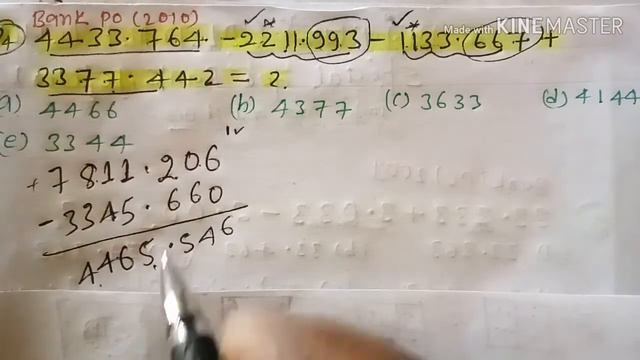 Bank PO (2010)
Made with KINEMASTER
4 4433.764 - 2211.993 - 1133.667 +
3377.442 = ?
(a) 4466 (b) 4377 (c) 3633 (d) 4144
(e) 3344
+7811.206
-3345.660
4465.546